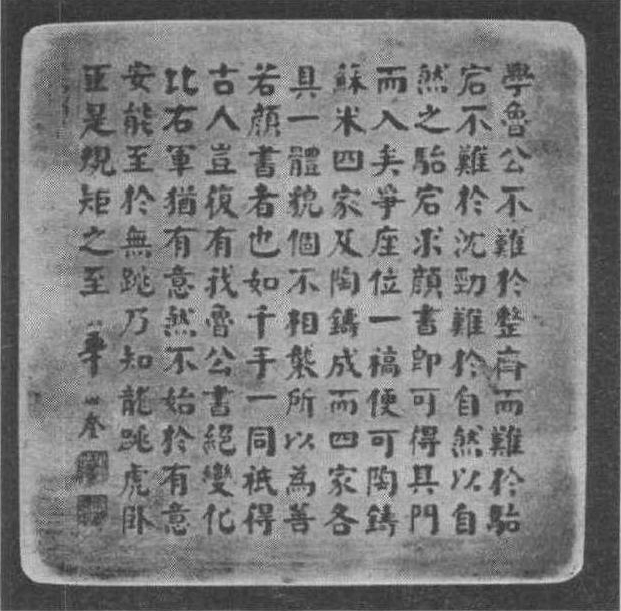 學魯公不難於整齊而難於駘
宕不難於沈勁難於自然以自
然之駘宕求顏書即可得其門
而入矣爭座位一稿便可陶鑄
蘇米四家及陶鑄成而四家各
具一體貌個不相襲所以為善
若顏書者也如千手一同祇得
古人豈復有我魯公書絕變化
比右軍猶有意然不始於有意
安能至於無跳乃知龍跳虎臥
正是規矩之至